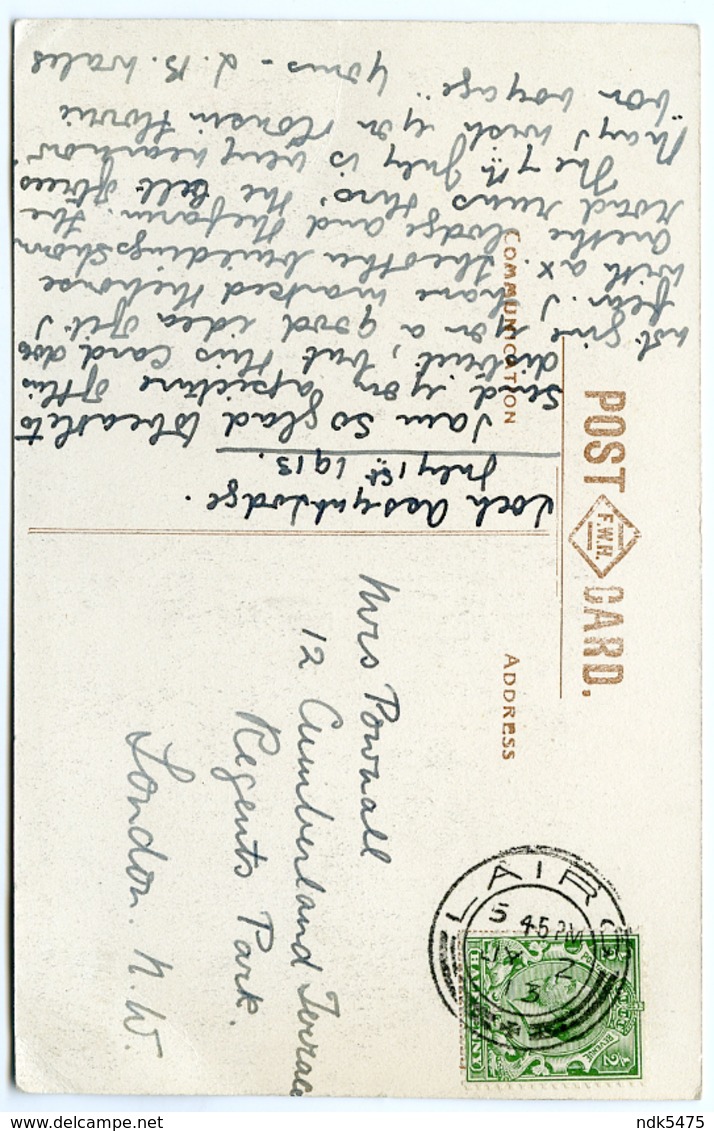 POST CARD.
F.W.H.
COMMUNICATION
ADDRESS
Loch Assynt Lodge.
July 1st 1913.
I am so glad to be able to
send you a picture of this
district, but this card does
not give you a good idea of it I
fear. I have marked the house
with a x the other buildings shown
are the lodge and the farm. The
road runs thro. the belt of trees
The 7th July is very near now
May I wish you & Cousin Florrie
"bon voyage"
Yours - L. B. Wales
Mrs Pownall
12 Cumberland Terrace
Regents Park.
London. N.W.
LAIRG
5 45 PM
JY 2
13
ndk5475